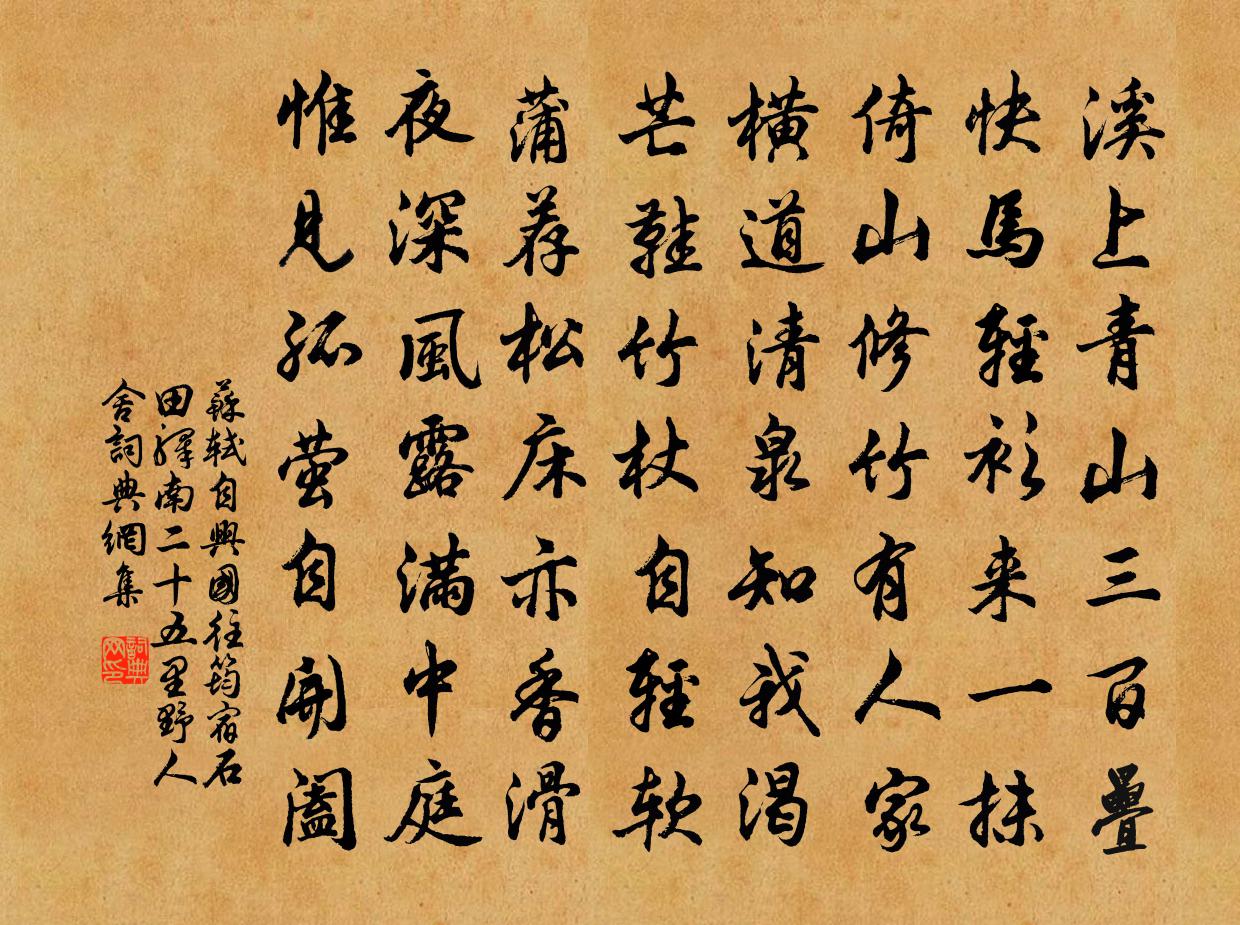 溪上青山三百疊
快馬輕衫来一抹
倚山修竹有人家
橫道清泉知我渴
芒鞋竹杖自輕軟
蒲荐松床亦香滑
夜深風露滿中庭
惟見孤萤自開阖
蘇軾自興國往筠宿石
田驛南二十五里野人
舍詞典網集
詞典网印